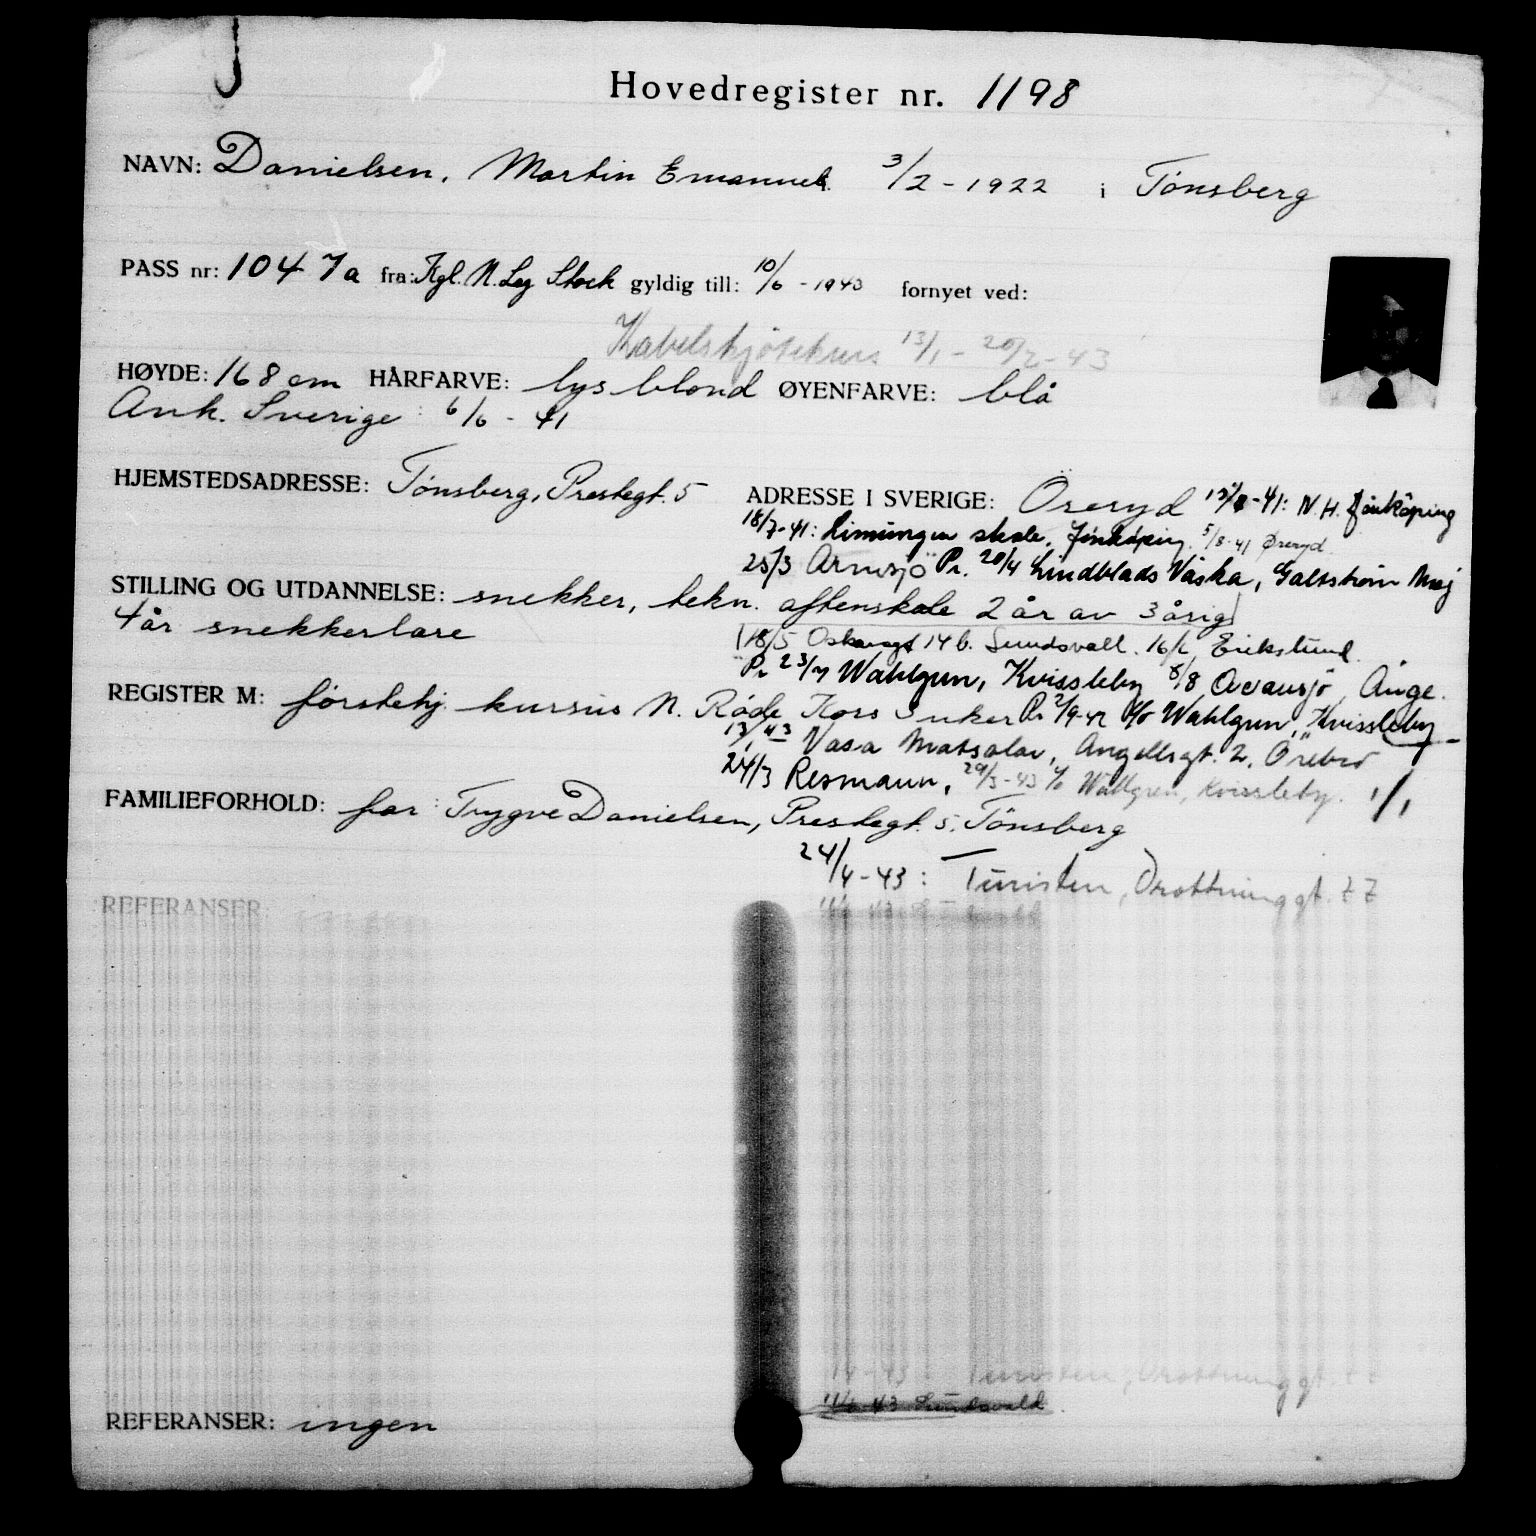 Hovedregister nr. 1198
NAVN: Danielsen, Martin Emanuel. 3/2-1922 i Tönsberg
PASS nr: 1047a fra: Kgl. N. Leg Stock gyldig till: 10/6-1943 fornyet ved:
Kabelskjötekurs 13/1-20/2-43
HØYDE: 168 cm HÅRFARVE: lys blond ØYENFARVE: blå
Ank. Sverige: 6/6-41
HJEMSTEDSADRESSE: Tönsberg, Prestegt. 5
ADRESSE I SVERIGE: Öreryd -41: N.H. Jönköping
18/7-41: Limingen skole, Jönköping. 5/8-41 Öreryd
25/3 Arnesjö Pr. 20/4 Lindblads Väska, Galtström
STILLING OG UTDANNELSE: snekker, tekn. aftenskole 2 år av 3årig
4 år snekkerlære
18/5 14 b. Sundsvall. Erikslund.
Pr 23/7 Wahlgren, Kvissleby 8/8 Ovansjö, Ånge.
REGISTER M: førstehj. kursus N. Røde Kors 3 uker Pr. 2/9-42 c/o Wahlgren, Kvissleby
13/1 43 Vasa Matsalar, Angellsgt. 2, Örebro
24/3 Resmann, 29/3-43 c/o Wahlgren, Kvissleby. 1/1
FAMILIEFORHOLD: far: Trygve Danielsen, Prestegt. 5, Tönsberg
24/4-43: Turisten, Drottninggt.
REFERANSER:
REFERANSER: ingen
43 Sundsvall.